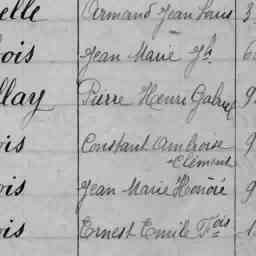 elle Armand Jean Louis 3
ois Jean Marie Jh 6
llay Pierre Henri Gabriel 9
ois Constant Ambroise 9
Clément
ois Jean Marie Honoré 9
ois Ernest Emile Fois 1